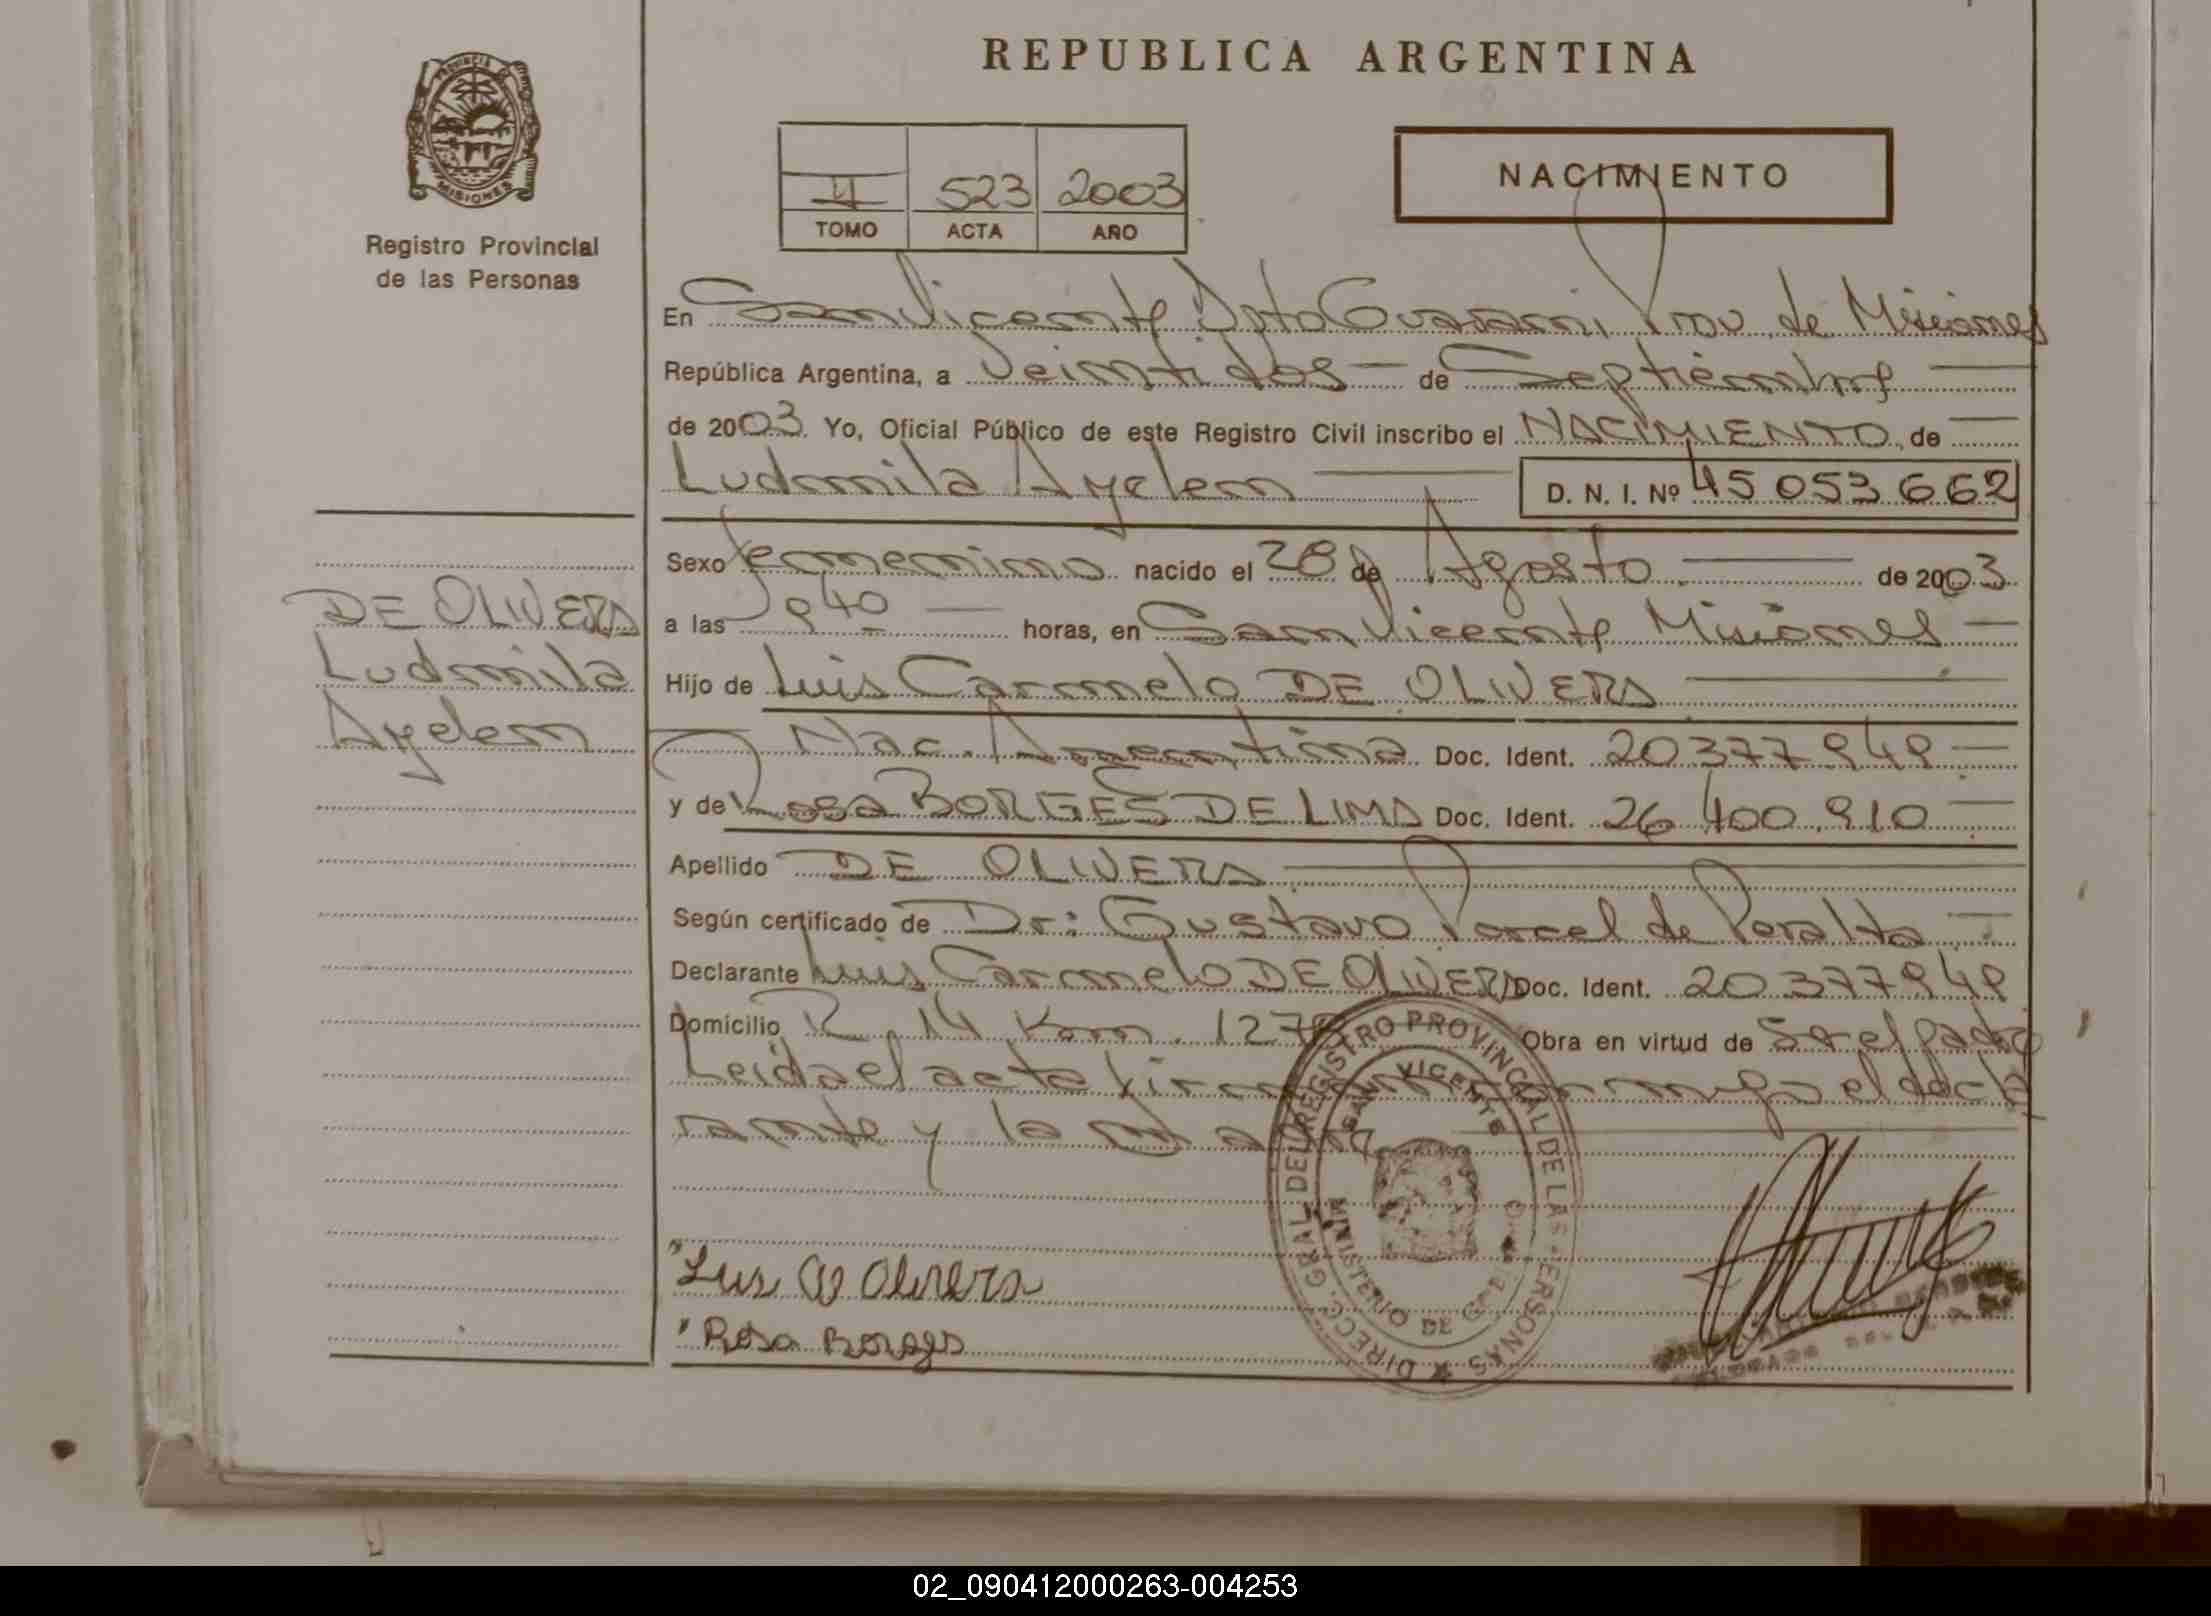 REPUBLICA ARGENTINA
PROVINCIA
MISIONES
Registro Provincial
de las Personas
523 2003
TOMO ACTA AÑO
NACIMIENTO
En San Vicente Dpto Guarani, Prov. de Misiones
República Argentina, a Veintidos — de Septiembre —
de 2003. Yo, Oficial Público de este Registro Civil inscribo el NACIMIENTO, de —
Ludmila Ayelen — D. N. I. Nº 45 053 662
Sexo femenino nacido el 28 de Agosto — de 2003
a las 940 — horas, en San Vicente Misiones —
Hijo de Luis Carmelo DE OLIVERA —
— Nac. Argentina Doc. Ident. 20.377.949 —
y de Rosa BORGES DE LIMA Doc. Ident. 26.400.910 —
Apellido DE OLIVERA —
Según certificado de Dr: Gustavo Porcel de Peralta —
Declarante Luis Carmelo DE OLIVERA Doc. Ident. 20.377.949
Domicilio R. 14 Km. 127 Obra en virtud de Ser el padre
Leida el acta firman conmigo el decla
rante y la madre —
DE OLIVERA
Ludmila
Ayelen
DIRECC. GRAL. DEL REGISTRO PROVINCIAL DE LAS PERSONAS
SAN VICENTE
MINISTERIO DE
Luis de Olivera
Rosa Borges
02_090412000263-004253